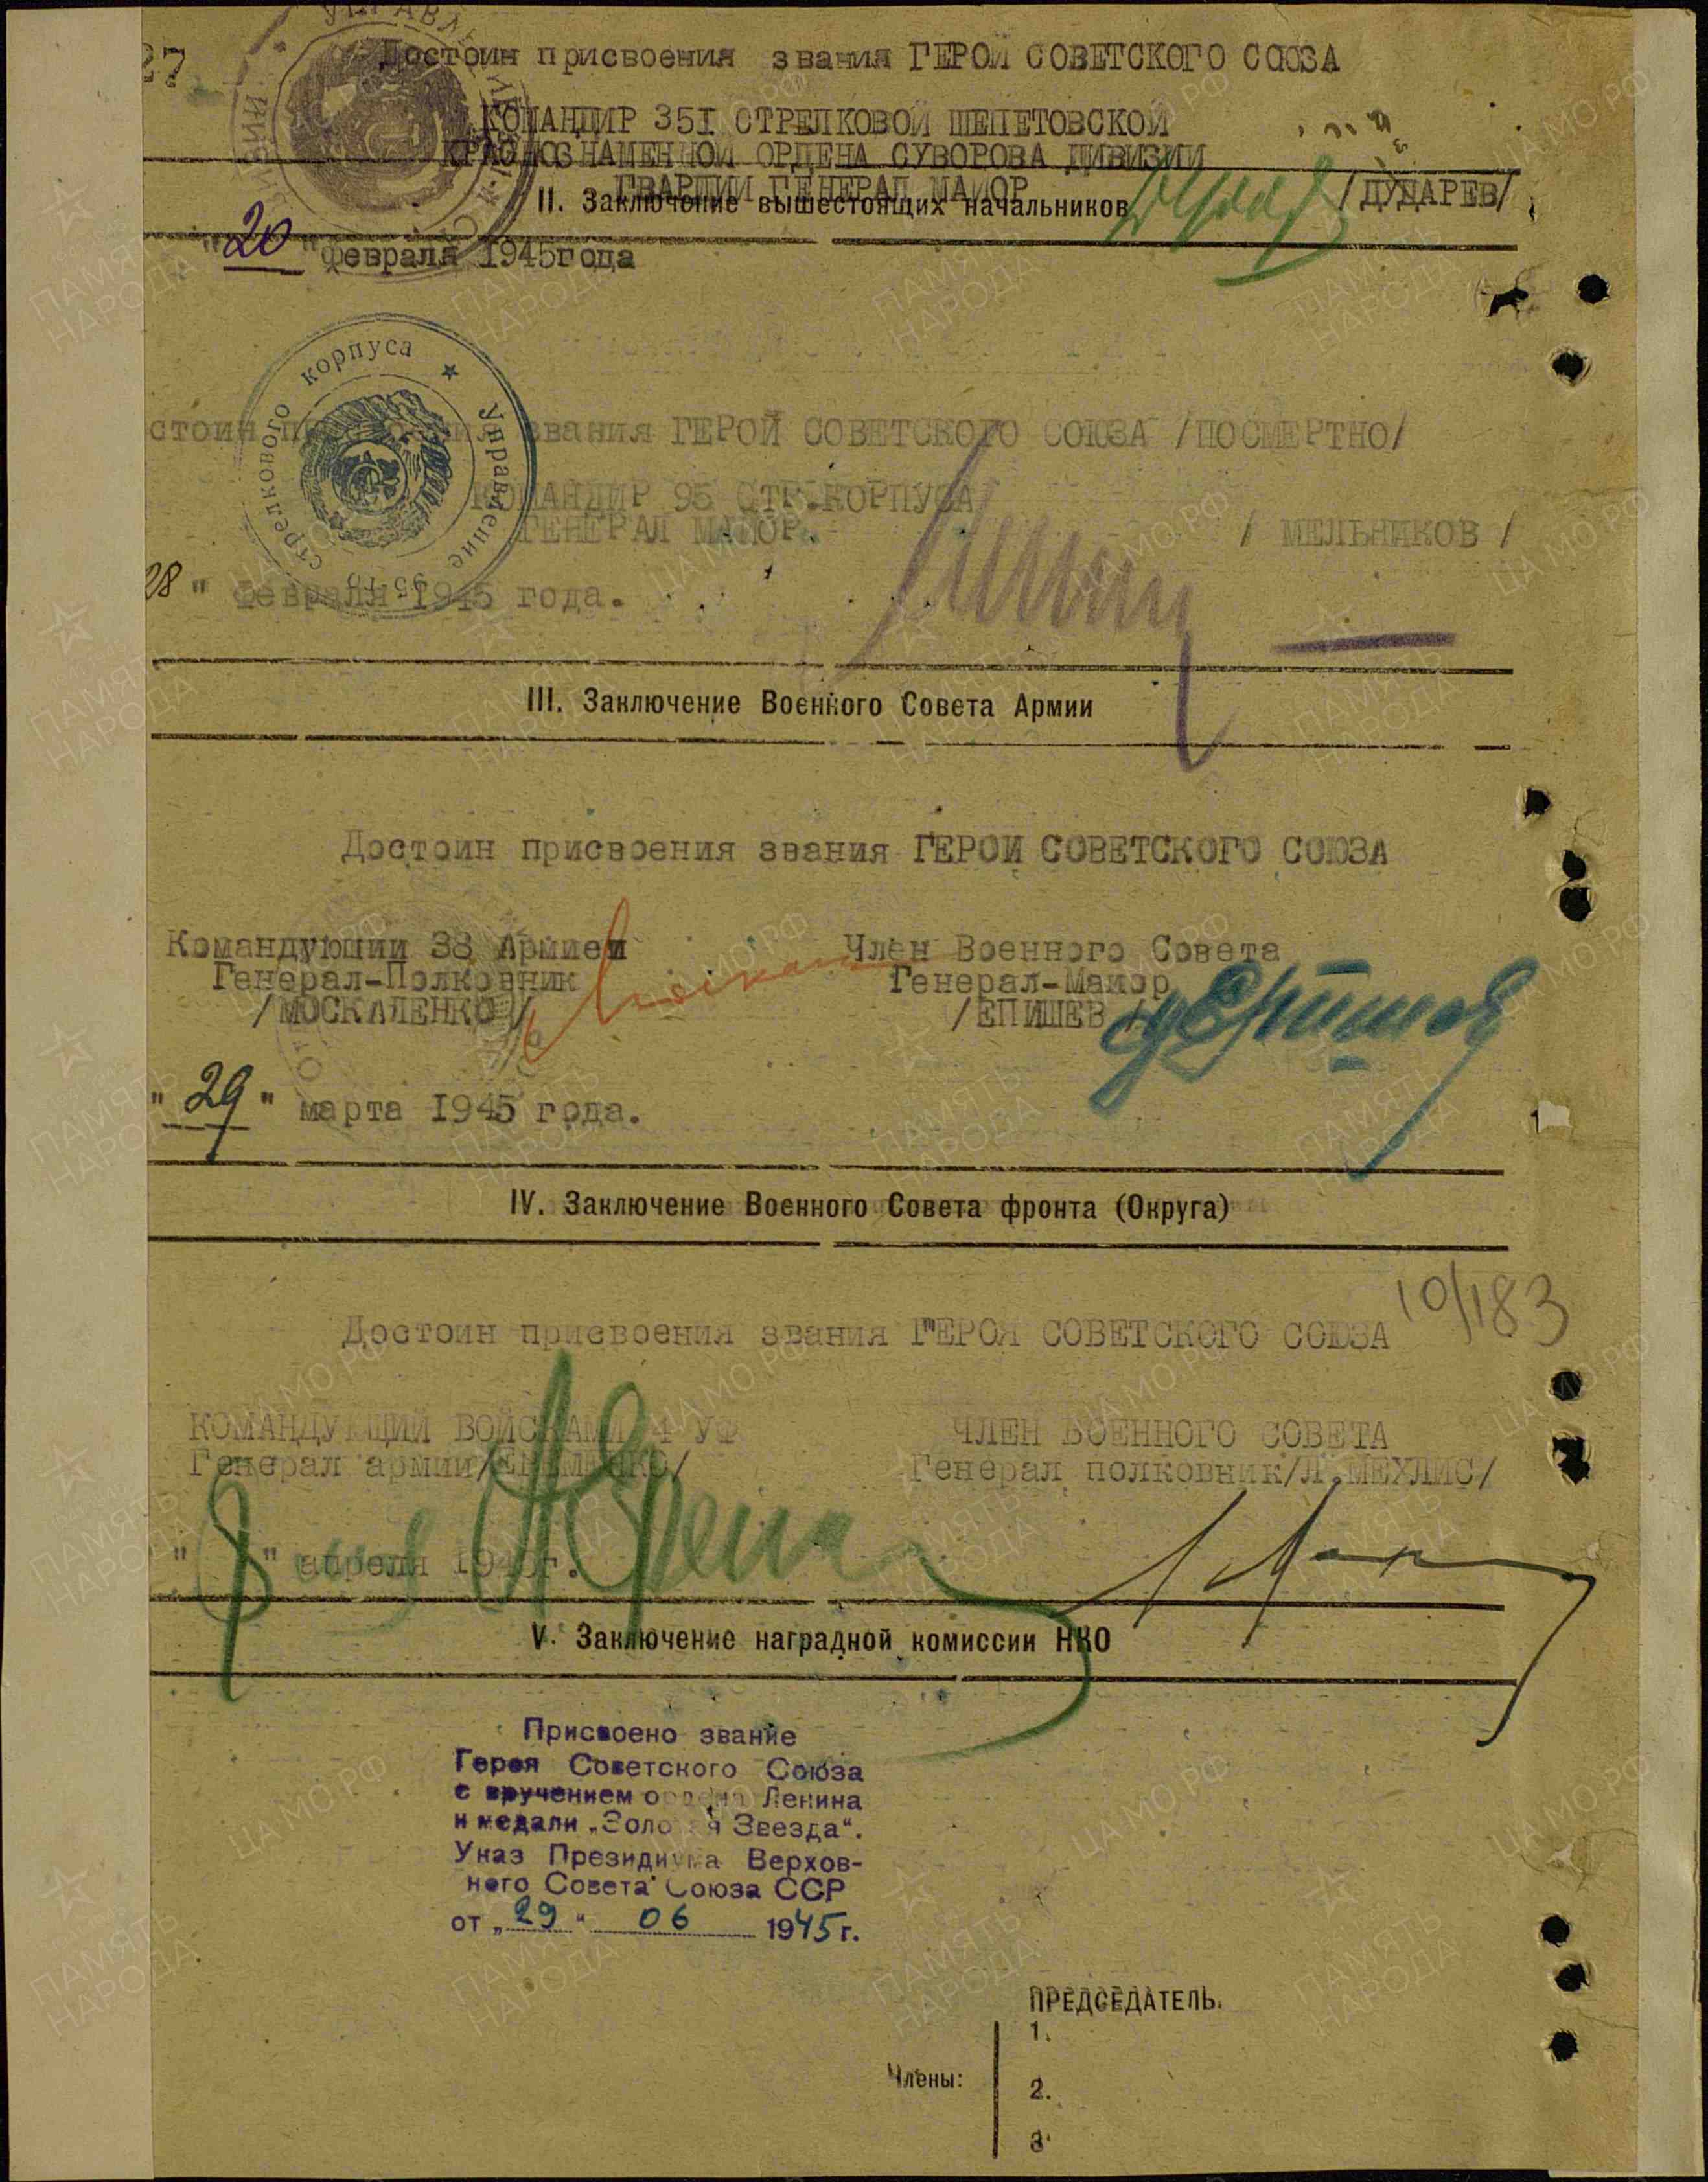 27
Достоин присвоения звания ГЕРОЙ СОВЕТСКОГО СОЮЗА
КОМАНДИР 351 СТРЕЛКОВОЙ ШЕПЕТОВСКОЙ
КРАСНОЗНАМЕННОЙ ОРДЕНА СУВОРОВА ДИВИЗИИ
ГВАРДИИ ГЕНЕРАЛ МАЙОР /ДУДАРЕВ/
II. Заключение вышестоящих начальников
"20" февраля 1945года
Управление 95-го стрелкового корпуса
стоин присвоения звания ГЕРОЙ СОВЕТСКОГО СОЮЗА /ПОСМЕРТНО/
КОМАНДИР 95 СТР.КОРПУСА
ГЕНЕРАЛ МАЙОР. / МЕЛЬНИКОВ /
28 " февраля 1945 года.
III. Заключение Военного Совета Армии
Достоин присвоения звания ГЕРОЙ СОВЕТСКОГО СОЮЗА
Командующий 38 Армией Член Военного Совета
Генерал-Полковник Генерал-Майор
/МОСКАЛЕНКО/ /ЕПИШЕВ/
"29" марта 1945 года.
IV. Заключение Военного Совета фронта (Округа)
10/183
Достоин присвоения звания ГЕРОЯ СОВЕТСКОГО СОЮЗА
КОМАНДУЮЩИЙ ВОЙСКАМИ 4 УФ ЧЛЕН ВОЕННОГО СОВЕТА
Генерал армии/ЕРЕМЕНКО/ Генерал полковник/Л.МЕХЛИС/
"8" апреля 1945г.
V. Заключение наградной комиссии НКО
Присвоено звание
Героя Советского Союза
с вручением ордена Ленина
и медали „Золотая Звезда“.
Указ Президиума Верхов-
ного Совета Союза ССР
от „29“ 06 1945г.
ПРЕДСЕДАТЕЛЬ.
1.
Члены:
2.
3